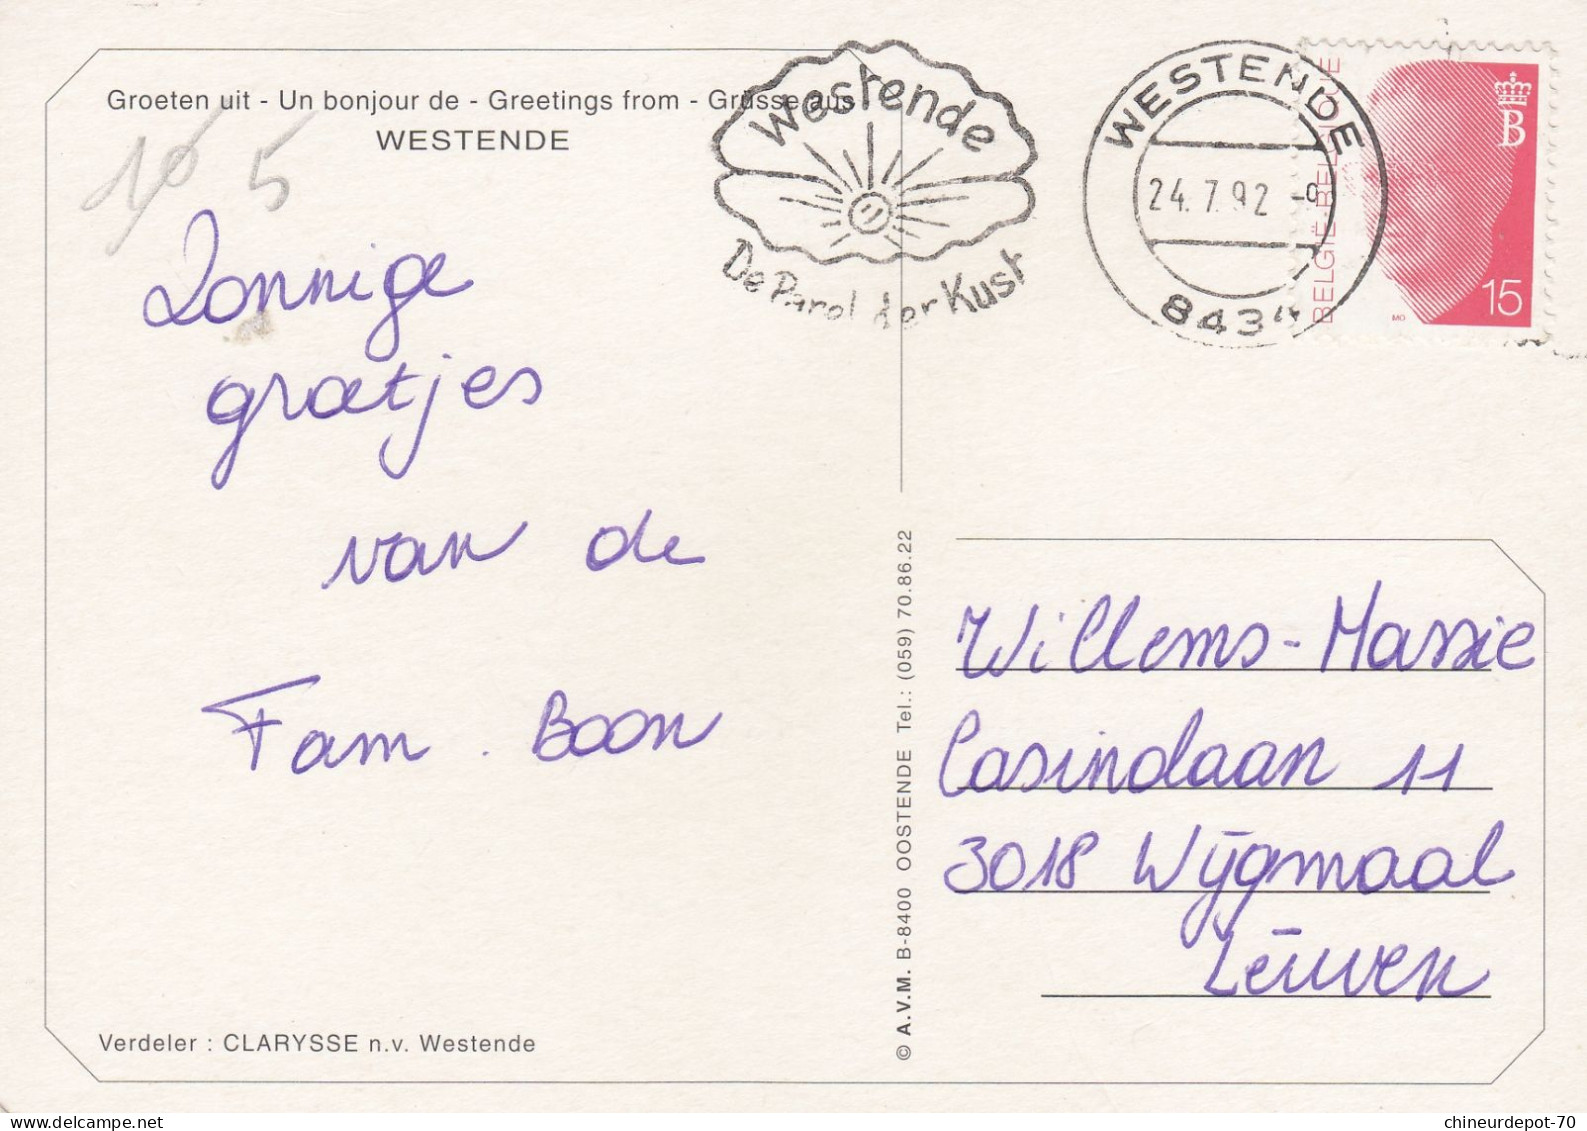 Groeten uit - Un bonjour de - Greetings from - Grüsse aus
WESTENDE
10 5
Zonnige
groetjes
van de
Fam. Boon
Verdeler : CLARYSSE n.v. Westende
Westende
De Parel der Kust
WESTENDE
24.7.92 -9
8434
BELGIË-BELGIQUE
B
15
MO
© A.V.M. B-8400 OOSTENDE Tel.: (059) 70.86.22
Willems-Massie
Casinolaan 11
3018 Wijgmaal
Leuven
chineurdepot-70